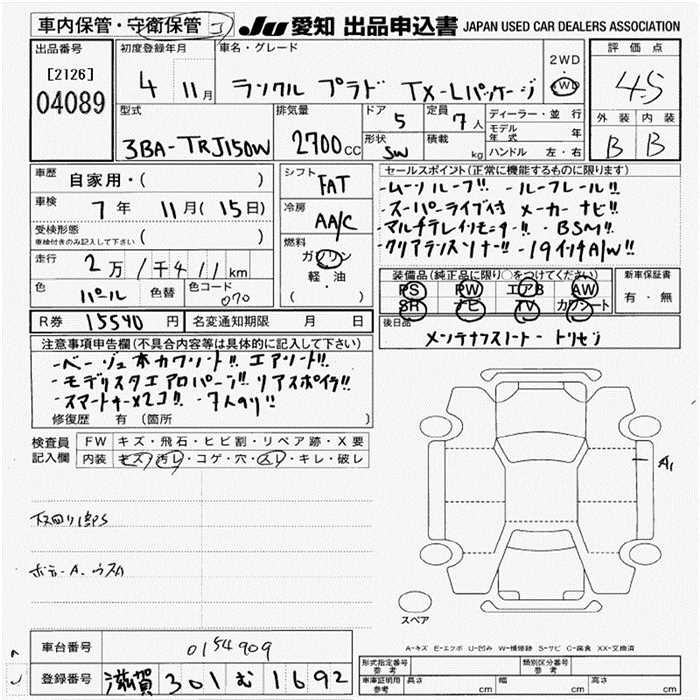 車内保管・守衛保管 コ
JU 愛知 出品申込書 JAPAN USED CAR DEALERS ASSOCIATION
出品番号
[2126]
04089
初度登録年月
4 11月
車名・グレード
ランクル プラド TX-Lパッケージ
2WD
4WD
評価点
4.5
外装 内装
B B
型式
3BA-TRJ150W
排気量
2700cc
ドア
5
形状
SW
定員
7人
積載
kg
ディーラー・並行
モデル年式 年
ハンドル 左・右
車歴
自家用・( )
車検
7年 11月(15日)
受検形態
車検付きのみ記入して下さい ( )
走行
2万 千4 11km
色
パール
色替
色コード
070
シフト
FAT
冷房
AA/C
燃料
ガソリン
軽・油
( )
セールスポイント(正常に機能するものに限ります)
-ムーンルーフ!! -ルーフレール!!
-スーパーライブ付 メーカーナビ!!
-マルチテレインモニター!! -BSM!!
-クリアランスソナー!! -19インチA/W!!
装備品(純正品に限り○をつけてください)
PS PW エアB AW
SR ナビ TV カワシート
新車保証書
有・無
後日品
メンテナンスノート-トリセツ
R券 15540円
名変通知期限 月 日
注意事項申告欄(不具合内容等は具体的に記入して下さい)
-ベージュ本カワシート!! エアシート!!
-モデリスタエアロパーツ!! リアスポイラ!!
-スマートキー×2コ!! -7人のり!!
修復歴 有 (箇所 )
検査員記入欄
FW キズ・飛石・ヒビ割・リペア跡・X要
内装 キズ・汚レ・コゲ・穴・スレ・キレ・破レ
下回り錆S
ボデーA.ウスA
A1
スペア
A-キズ E-エクボ U-凹み W-補修跡 S-サビ C-腐食 XX-交換済
車台番号
0154909
登録番号
滋賀 301 む 1692
形式指定番号
参考
類別区分番号
参考
車庫証明用
参考
長さ cm 幅 cm 高さ cm